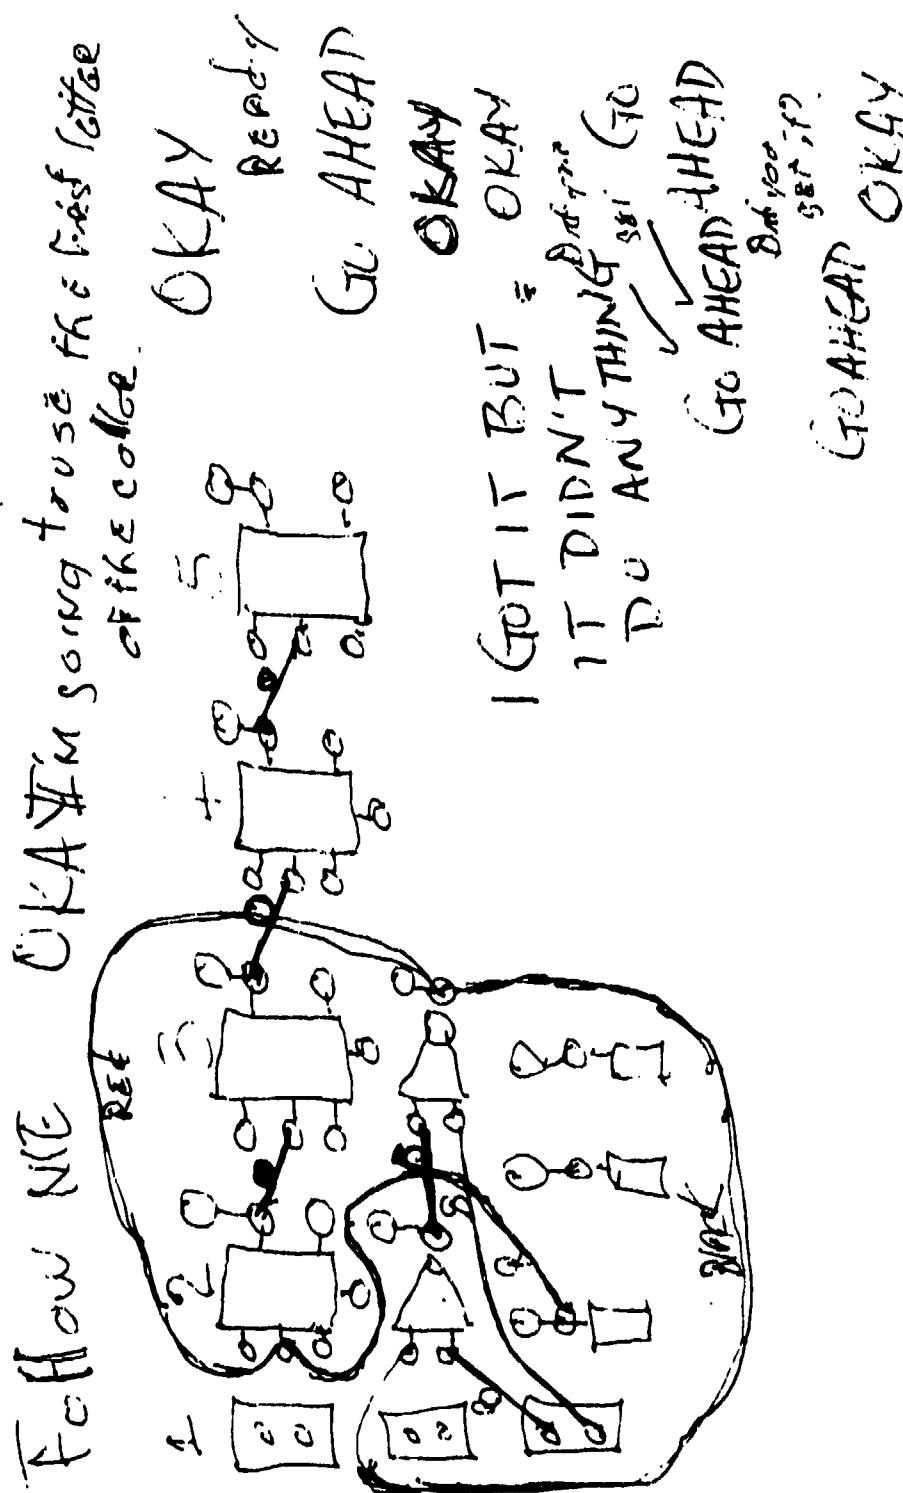 Follow ME
OKAY I'M going to use the first letter
of the color.
OKAY
READY
GO AHEAD
OKAY
OKAY
I GOT IT BUT
IT DIDN'T
DO ANYTHING
Did you
get
GO
AHEAD
GO AHEAD
Did you
get it?
GO AHEAD
OKAY
1
2
3
4
5
RED